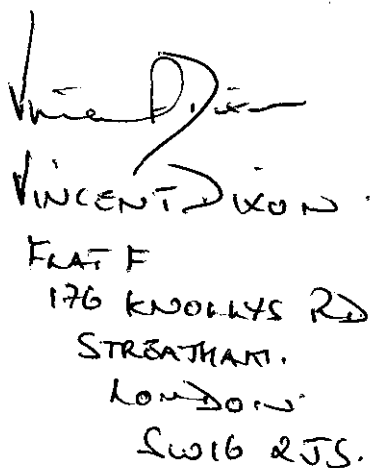 Vincent Dixon
VINCENT DIXON.
FLAT F
176 KNOLLYS RD
STREATHAM.
LONDON
SW16 2JS.